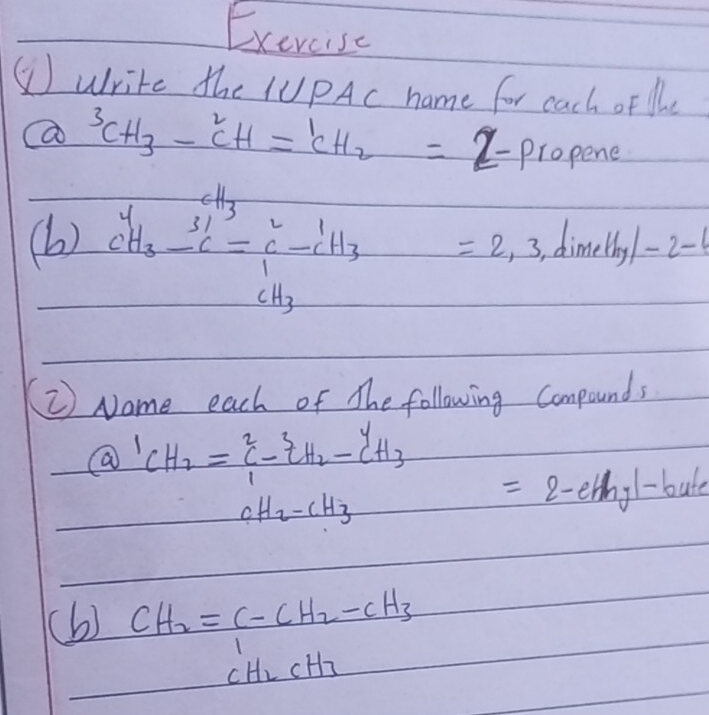 Exercise
(1) Write the IUPAC name for each of the
(a) ³CH₃ – ²CH = ¹CH₂ = 2-propene
CH₃
(b) ⁴CH₃ – ³C = ²C – ¹CH₃ = 2, 3, dimethyl – 2 –
CH₃
(2) Name each of the following Compounds.
(a) ¹CH₂ = ²C – ³CH₂ – ⁴CH₃
CH₂ – CH₃ = 2-ethyl-bute
(b) CH₂ = C – CH₂ – CH₃
CH₂ CH₃